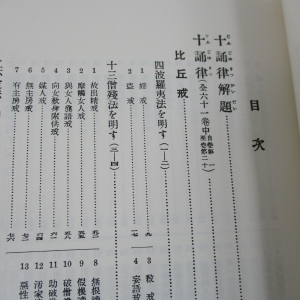 目次
十誦律解題
十誦律(全六十一卷中自卷第一至卷第二十)
比丘戒
四波羅夷法を明す(一—二)
1 婬戒
2 盜戒
3 殺戒
4 妄語戒
十三僧殘法を明す(三—四)
1 故出精戒
2 摩觸女人戒
3 與女人麤語戒
4 向女歎身索供戒
5 媒人戒
6 無主房戒
7 有主房戒
8 無根謗
9 假根謗
10 破僧
11 助破
12 汚家
13 惡性